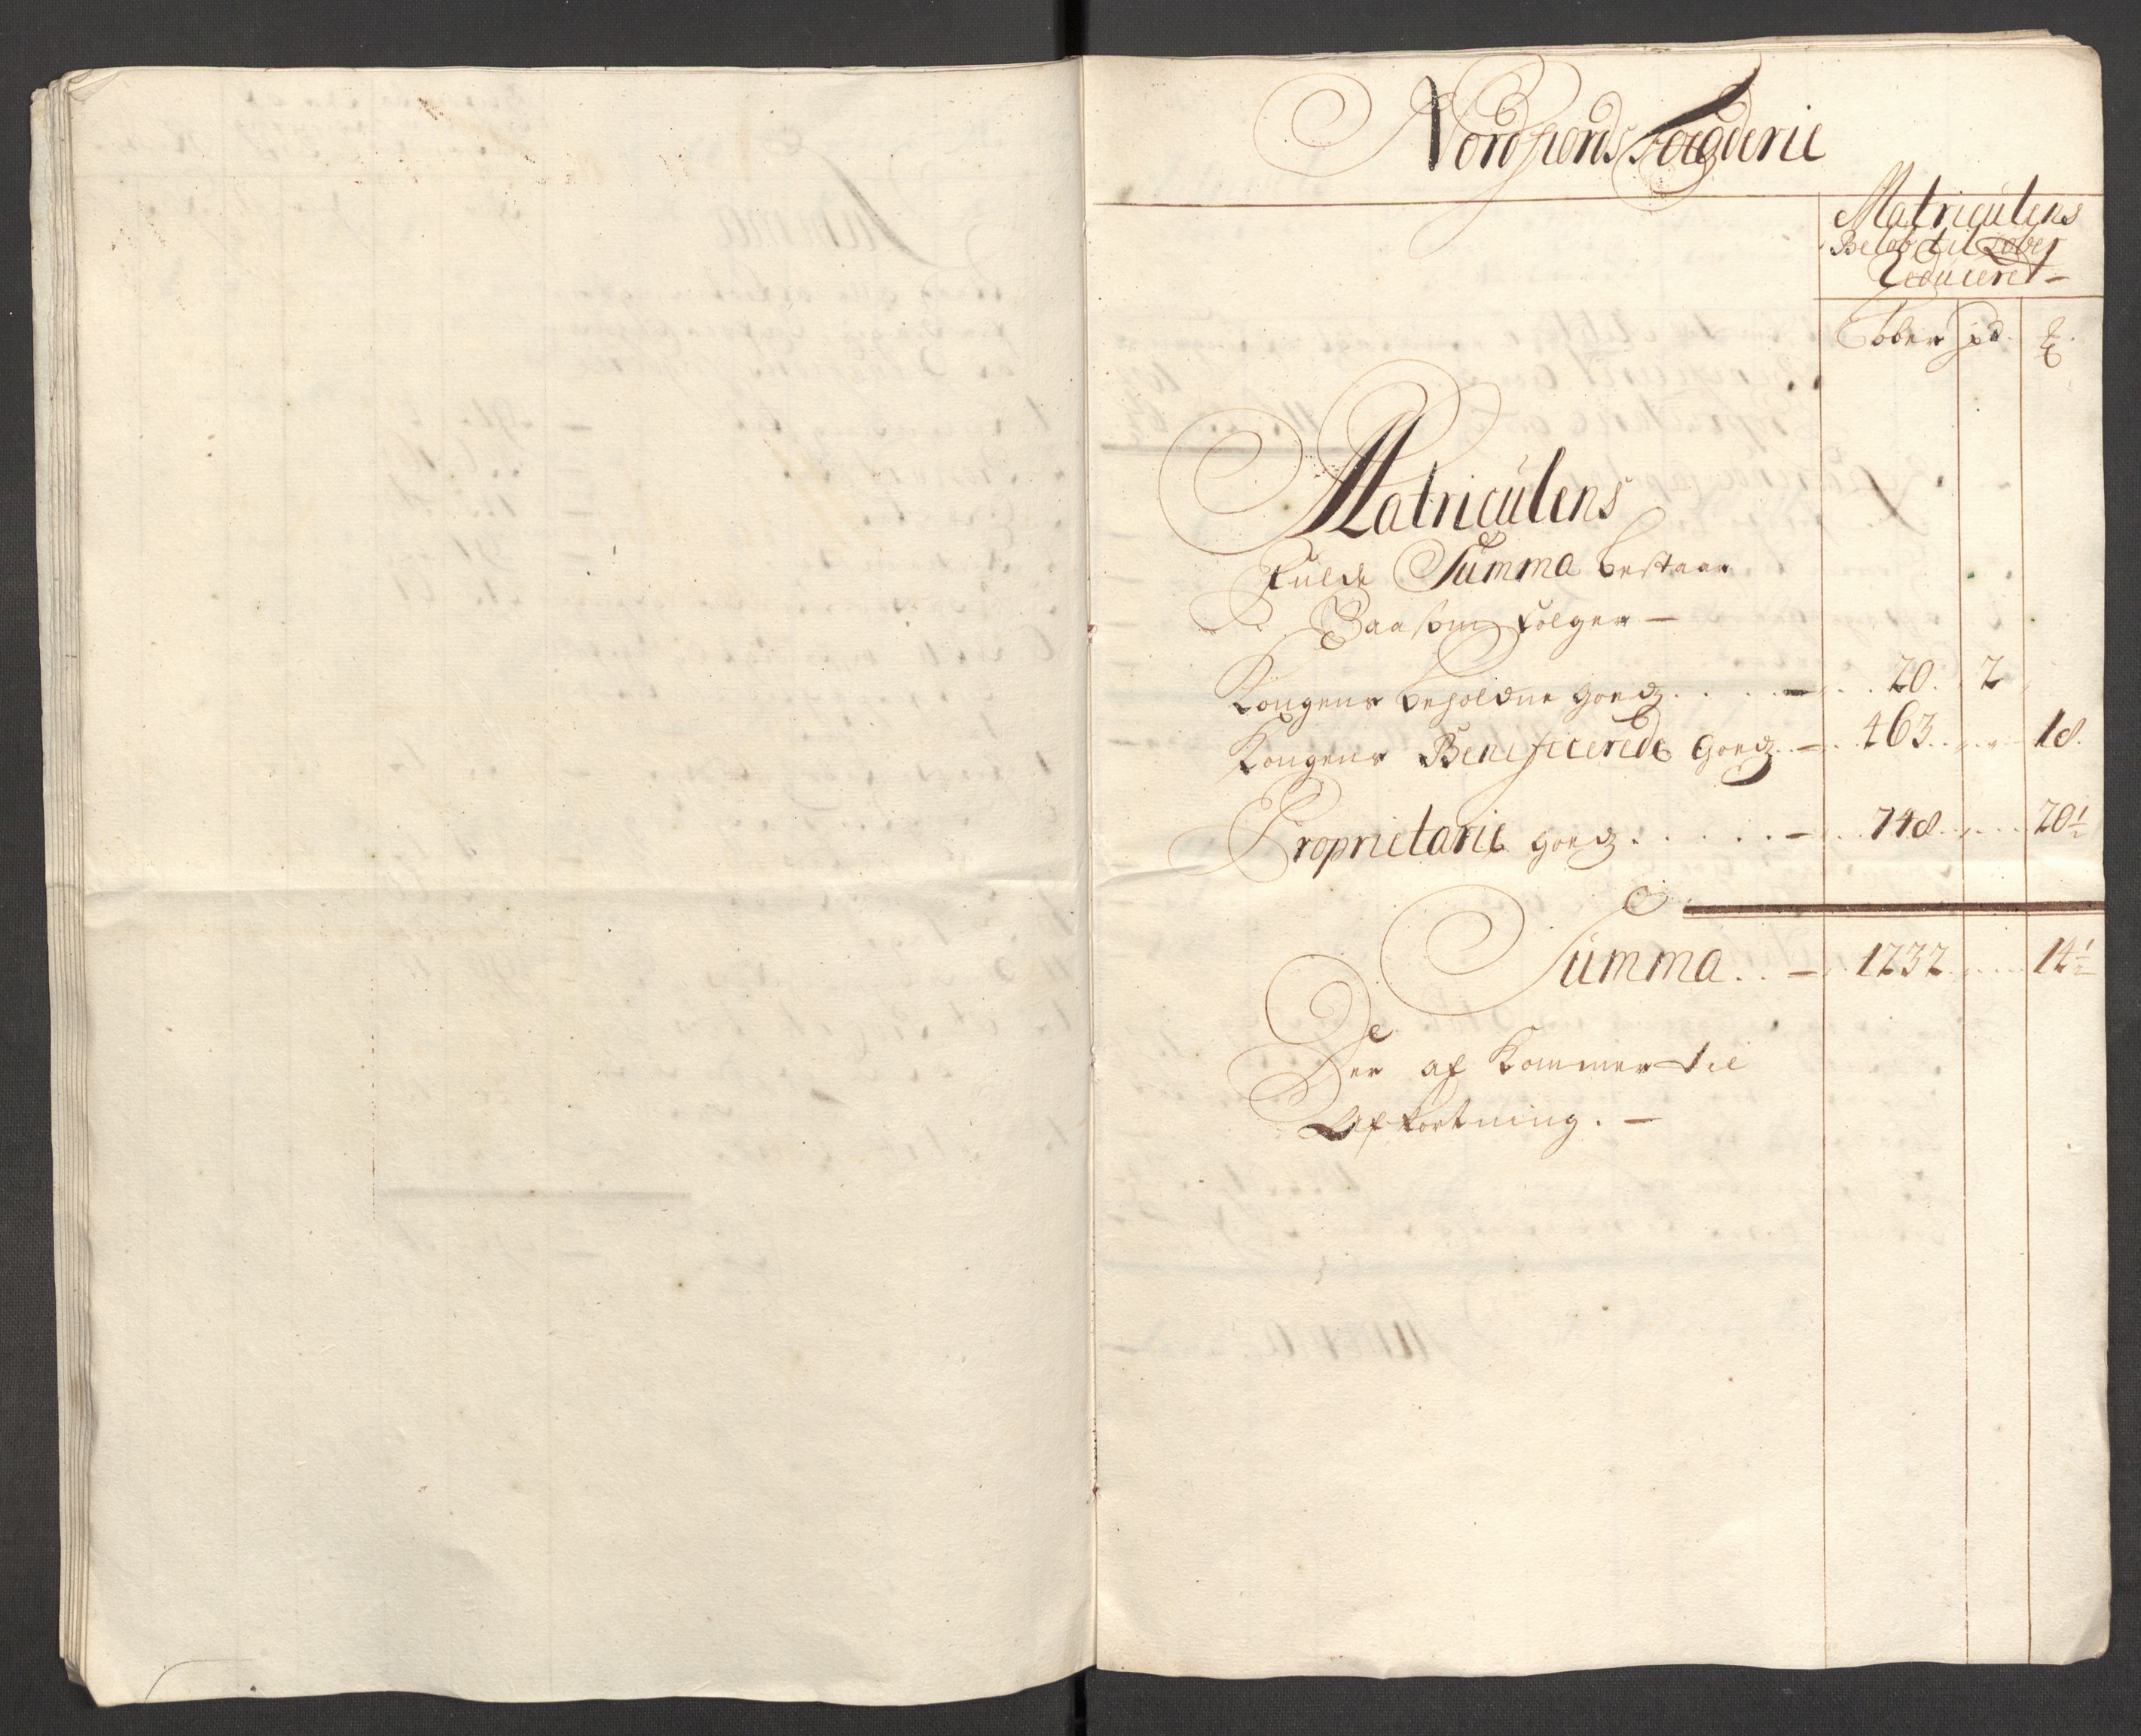 Nordfiords Fogderie
Matriculens
Beløb til Løber
Reduceret –
Løber pd. ℔.
Matriculens
Fulde Summa bestaar
Paa som følger –
Kongens beholdne goedz . . . . – . . 20. . 2
Kongens Beneficerede Goedz . – . . 463 . . . „ . „ . . 18.
Proprietarie goedz . . . . . . – . . . 748 . . . „ . . . . 20½
Summa . . – . . 1232 . . . . . . 14½
Der af Kommer til
Afkortning . –